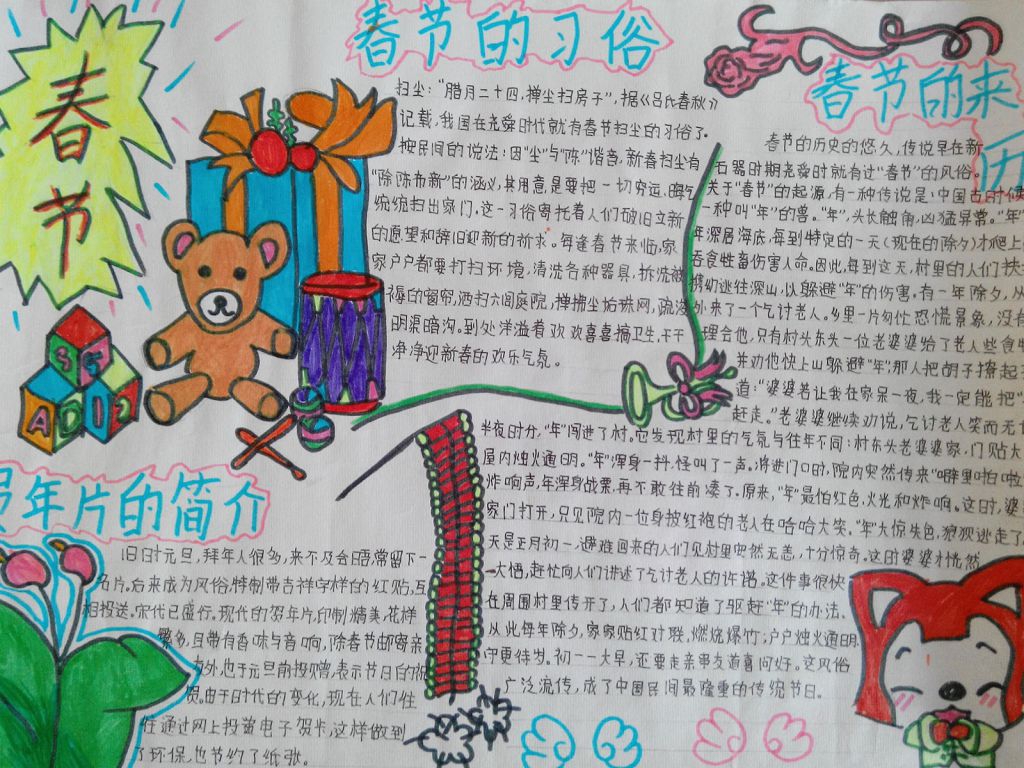 春节
春节的习俗
扫尘：“腊月二十四，掸尘扫房子”，据《吕氏春秋》
记载，我国在尧舜时代就有春节扫尘的习俗了。
按民间的说法：因“尘”与“陈”谐音，新春扫尘有
“除陈布新”的涵义，其用意是要把一切穷运、晦气
统统扫出家门。这一习俗寄托着人们破旧立新
的愿望和辞旧迎新的祈求。每逢春节来临，家
家户户都要打扫环境，清洗各种器具，拆洗被
褥窗帘，洒扫六闾庭院，掸拂尘垢蛛网，疏浚
明渠暗沟。到处洋溢着欢欢喜喜搞卫生，干干
净净迎新春的欢乐气氛。
春节的来
历
春节的历史的悠久，传说早在新
石器时期尧舜时就有过“春节”的风俗。
关于“春节”的起源，有一种传说是：中国古时候
一种叫“年”的兽。“年”，头长触角，凶猛异常。“年”
年深居海底，每到特定的一天（现在的除夕）才爬上
吞食牲畜伤害人命。因此，每到这天，村里的人们扶
携幼逃往深山，以躲避“年”的伤害。有一年除夕，从
外来了一个乞讨老人。乡里一片匆忙恐慌景象，没有
理会他，只有村头东头一位老婆婆给了老人些食
并劝他快上山躲避“年”，那人把胡子撩起
道：“婆婆若让我在家呆一夜，我一定能把“
赶走。”老婆婆继续劝说，乞讨老人笑而无
半夜时分，“年”闯进了村。它发现村里的气氛与往年不同：村东头老婆婆家，门贴大
屋内烛火通明。“年”浑身一抖，怪叫了一声。将进门口时，院内突然传来“噼里啪啦
炸响声，年浑身战栗，再不敢往前凑了。原来，“年”最怕红色，火光和炸响。这时，婆
家门打开，只见院内一位身披红袍的老人在哈哈大笑。“年”大惊失色，狼狈逃走了
天是正月初一，避难回来的人们见村里安然无恙，十分惊奇。这时婆婆才恍然
大悟，赶忙向人们讲述了乞讨老人的许诺。这件事很快
在周围村里传开了，人们都知道了驱赶“年”的办法。
从此每年除夕，家家贴红对联，燃烧爆竹；户户烛火通明，
守更待岁。初一一大早，还要走亲串友道喜问好。这风俗
广泛流传，成了中国民间最隆重的传统节日。
年片的简介
旧时元旦，拜年人很多，来不及会晤，常留下一
名片。后来成为风俗，特制带吉祥字样的红贴，互
相投送。宋代已盛行。现代的贺年片，印制精美，花样
繁多，且带有香味与音响，除春节邮寄亲
友外，也于元旦前投赠，表示节日的祝
由于时代的变化，现在人们往
往通过网上投递电子贺卡，这样做到
了环保，也节约了纸张。